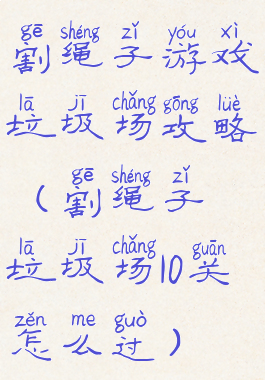 gē shéng zǐ yóu xì
割绳子游戏
lā jī chǎng gōng lüè
垃圾场攻略
gē shéng zǐ
（割绳子
lā jī chǎng guān
垃圾场10关
zěn me guò
怎么过）